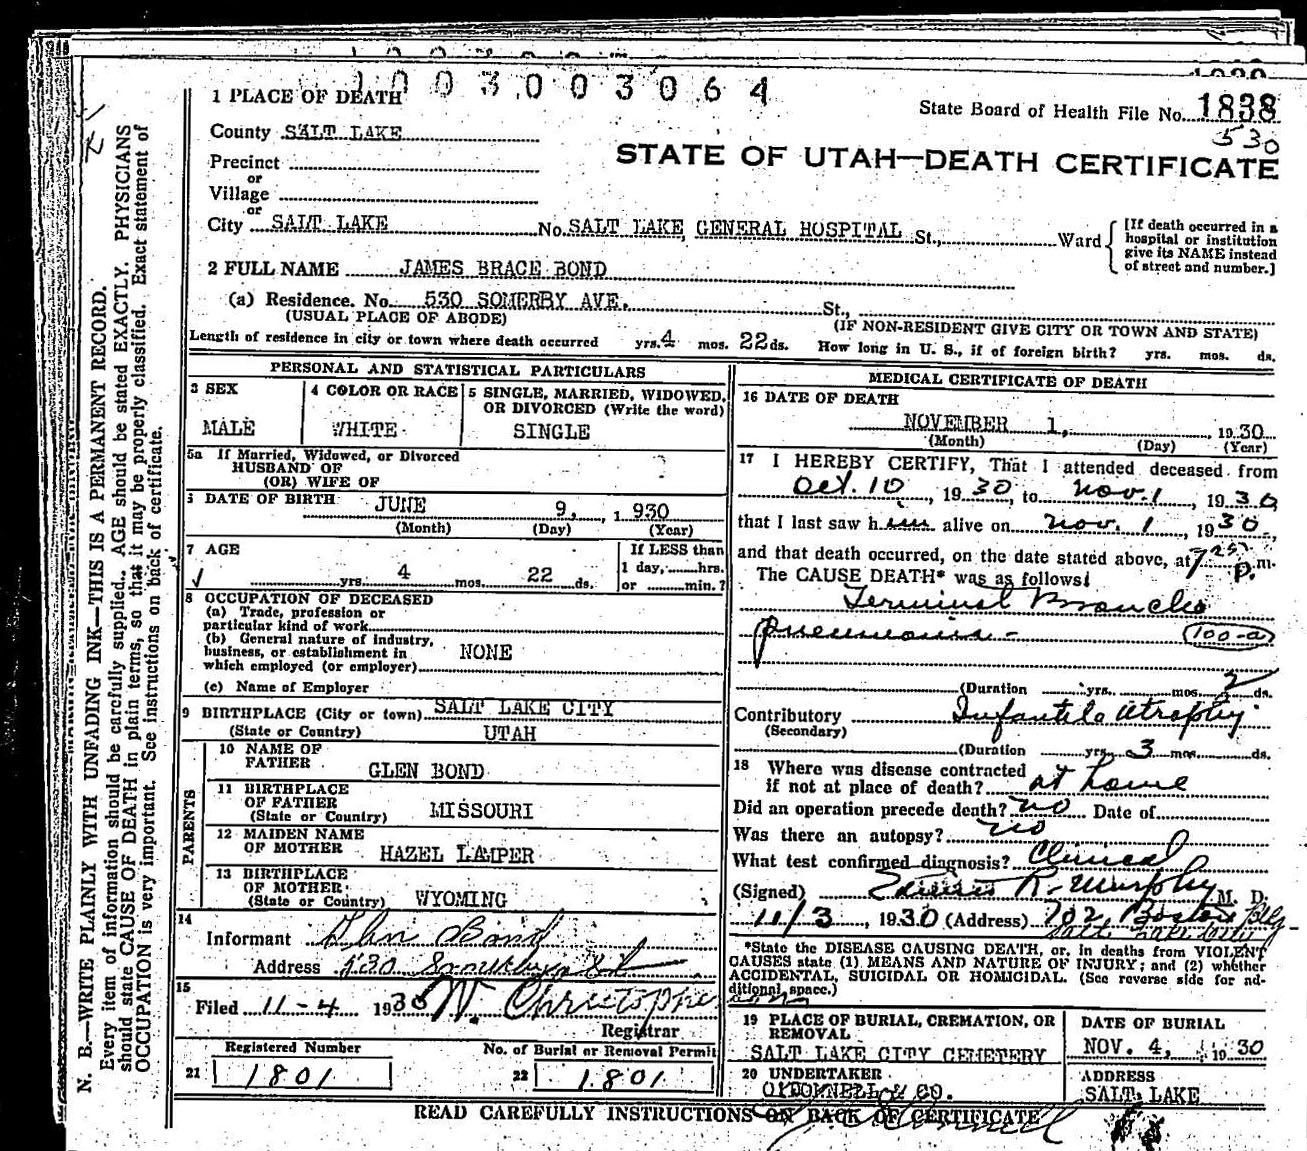 1003003064
1 PLACE OF DEATH
State Board of Health File No. 1838
530
County SALT LAKE
STATE OF UTAH—DEATH CERTIFICATE
Precinct
or
Village
or
City SALT LAKE No. SALT LAKE GENERAL HOSPITAL St., Ward
[If death occurred in a hospital or institution give its NAME instead of street and number.]
2 FULL NAME JAMES BRACE BOND
(a) Residence. No. 530 SOMERBY AVE. St.,
(USUAL PLACE OF ABODE) (IF NON-RESIDENT GIVE CITY OR TOWN AND STATE)
Length of residence in city or town where death occurred yrs. 4 mos. 22 ds. How long in U. S., if of foreign birth? yrs. mos. ds.
PERSONAL AND STATISTICAL PARTICULARS
3 SEX
MALE
4 COLOR OR RACE
WHITE
5 SINGLE, MARRIED, WIDOWED,
OR DIVORCED (Write the word)
SINGLE
5a If Married, Widowed, or Divorced
HUSBAND OF
(OR) WIFE OF
DATE OF BIRTH JUNE 9, 1930
(Month) (Day) (Year)
7 AGE
yrs. 4 mos. 22 ds.
If LESS than
1 day, hrs.
or min.?
8 OCCUPATION OF DECEASED
(a) Trade, profession or
particular kind of work
(b) General nature of industry,
business, or establishment in
which employed (or employer) NONE
(c) Name of Employer
9 BIRTHPLACE (City or town) SALT LAKE CITY
(State or Country) UTAH
PARENTS
10 NAME OF
FATHER GLEN BOND
11 BIRTHPLACE
OF FATHER
(State or Country) MISSOURI
12 MAIDEN NAME
OF MOTHER HAZEL LAMPER
13 BIRTHPLACE
OF MOTHER
(State or Country) WYOMING
14
Informant Glen Bond
Address 530
15
Filed 11-4 1930 W. Christopherson
Registrar
Registered Number No. of Burial or Removal Permit
21 1801 22 1801
MEDICAL CERTIFICATE OF DEATH
16 DATE OF DEATH
NOVEMBER 1, 1930
(Month) (Day) (Year)
17 I HEREBY CERTIFY, That I attended deceased from
Oct. 10, 1930, to Nov. 1, 1930
that I last saw him alive on Nov. 1, 1930,
and that death occurred, on the date stated above, at 7 P. m.
The CAUSE DEATH* was as follows:
Terminal Broncho
pneumonia - 100-a
(Duration yrs. mos. 2 ds.
Contributory Infantile atrophy
(Secondary)
(Duration yrs. 3 mos. ds.
18 Where was disease contracted
if not at place of death? at home
Did an operation precede death? no Date of
Was there an autopsy? no
What test confirmed diagnosis? Clinical
(Signed) R. Murphy M. D.
11/3, 1930 (Address) 702 Boston Bldg
Salt Lake City
*State the DISEASE CAUSING DEATH, or, in deaths from VIOLENT
CAUSES state (1) MEANS AND NATURE OF INJURY; and (2) whether
ACCIDENTAL, SUICIDAL OR HOMICIDAL. (See reverse side for ad-
ditional space.)
19 PLACE OF BURIAL, CREMATION, OR
REMOVAL
SALT LAKE CITY CEMETERY
DATE OF BURIAL
NOV. 4, 1930
20 UNDERTAKER
O'DONNELL & CO.
ADDRESS
SALT LAKE
READ CAREFULLY INSTRUCTIONS ON BACK OF CERTIFICATE
N. B.—WRITE PLAINLY WITH UNFADING INK—THIS IS A PERMANENT RECORD.
Every item of information should be carefully supplied. AGE should be stated EXACTLY. PHYSICIANS
should state CAUSE OF DEATH in plain terms, so that it may be properly classified. Exact statement of
OCCUPATION is very important. See instructions on back of certificate.